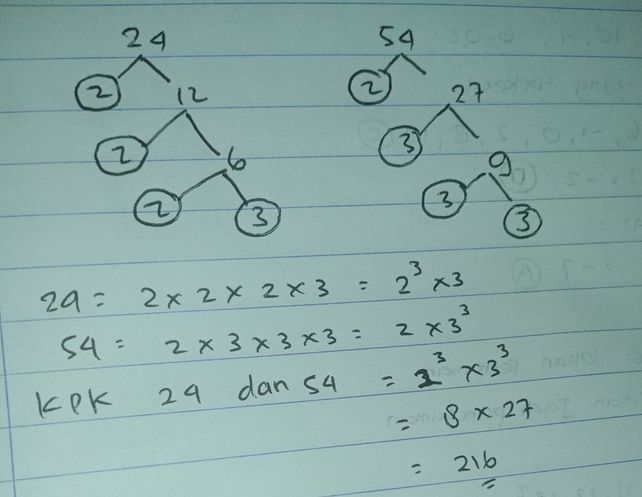 24 54
2 12 2 27
2 6 3 9
2 3 3 3
24 = 2 × 2 × 2 × 3 = 2³ × 3
54 = 2 × 3 × 3 × 3 = 2 × 3³
KPK 24 dan 54 = 2³ × 3³
= 8 × 27
= 216